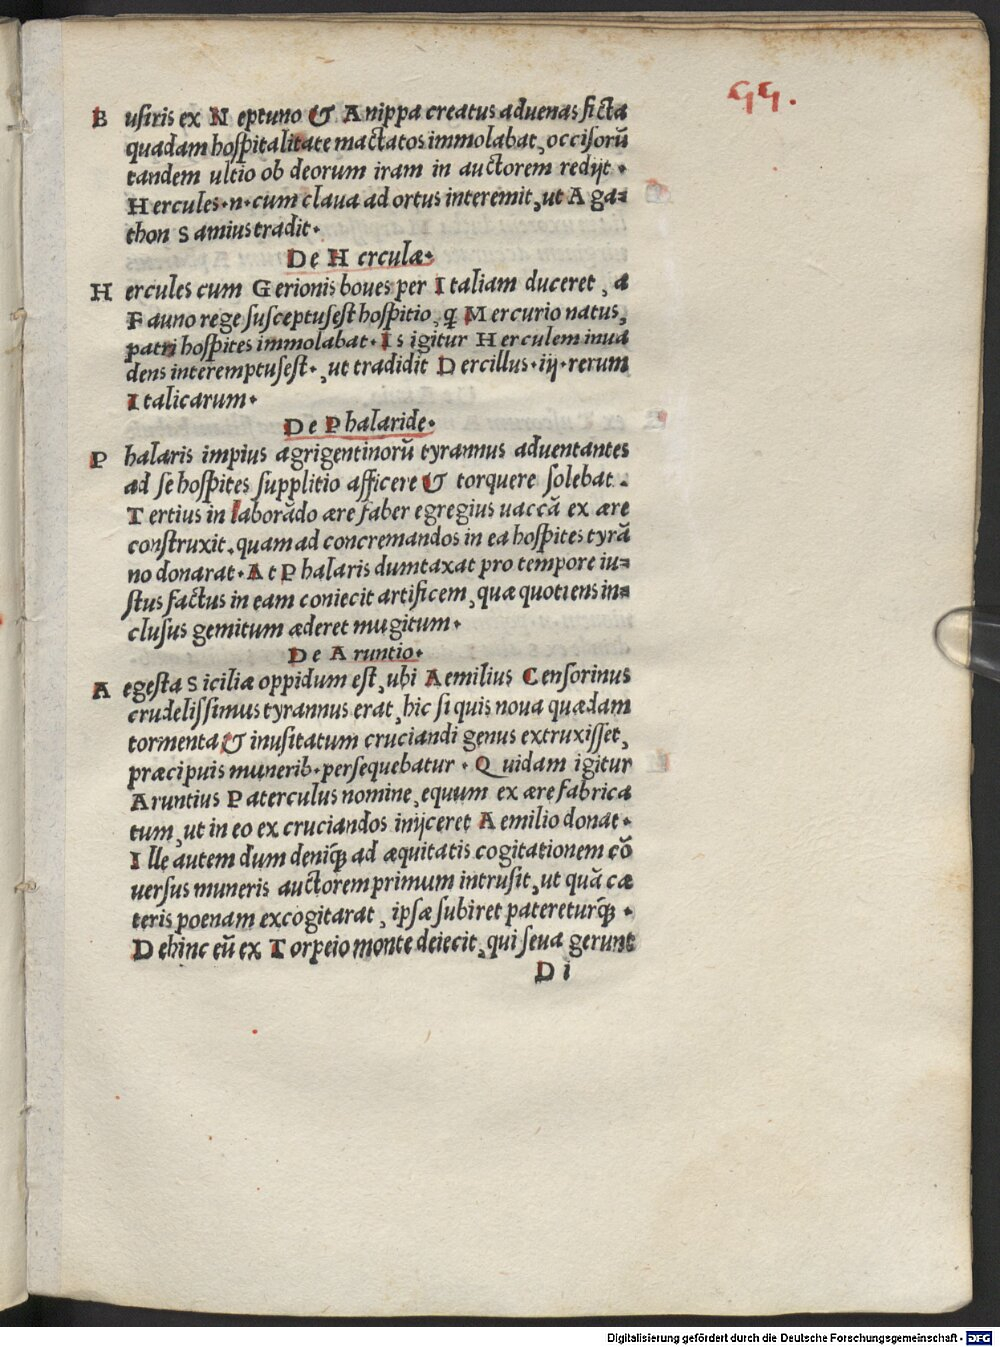 99.
Busiris ex Neptuno & Anippa creatus aduenas ficta
quadam hospitalitate mactatos immolabat, occisorū
tandem ultio ob deorum iram in auctorem redijt.
Hercules.n.cum claua adortus interemit, ut Aga=
thon Samius tradit.
De Herculæ.
Hercules cum Gerionis boues per Italiam duceret, a
Fauno rege susceptus est hospitio, q̃ Mercurio natus,
patri hospites immolabat. Is igitur Herculem inua
dens interemptus est., ut tradidit Dercillus.iij.rerum
Italicarum.
De Phalaride.
Phalaris impius agrigentinorū tyrannus aduentantes
ad se hospites supplitio afficere & torquere solebat.
Tertius in laborādo ære faber egregius uaccā ex ære
construxit, quam ad concremandos in ea hospites tyrā
no donarat. At Phalaris dumtaxat pro tempore iu=
stus factus in eam coniecit artificem, quæ quotiens in=
clusus gemitum æderet mugitum.
De Aruntio.
Aegesta Siciliæ oppidum est, ubi Aemilius Censorinus
crudelissimus tyrannus erat, hic si quis noua quædam
tormenta & inusitatum cruciandi genus extruxisset,
præcipuis munerib.persequebatur. Quidam igitur
Aruntius Paterculus nomine, equum ex ære fabrica
tum, ut in eo ex cruciandos inijceret Aemilio donat.
Ille autem dum deniq; ad æquitatis cogitationem cō
uersus muneris auctorem primum intrusit, ut quā cæ
teris poenam excogitarat, ipsæ subiret patereturq;.
Dehinc eū ex Torpeio monte deiecit, qui seua gerunt
Di
Digitalisierung gefördert durch die Deutsche Forschungsgemeinschaft - DFG